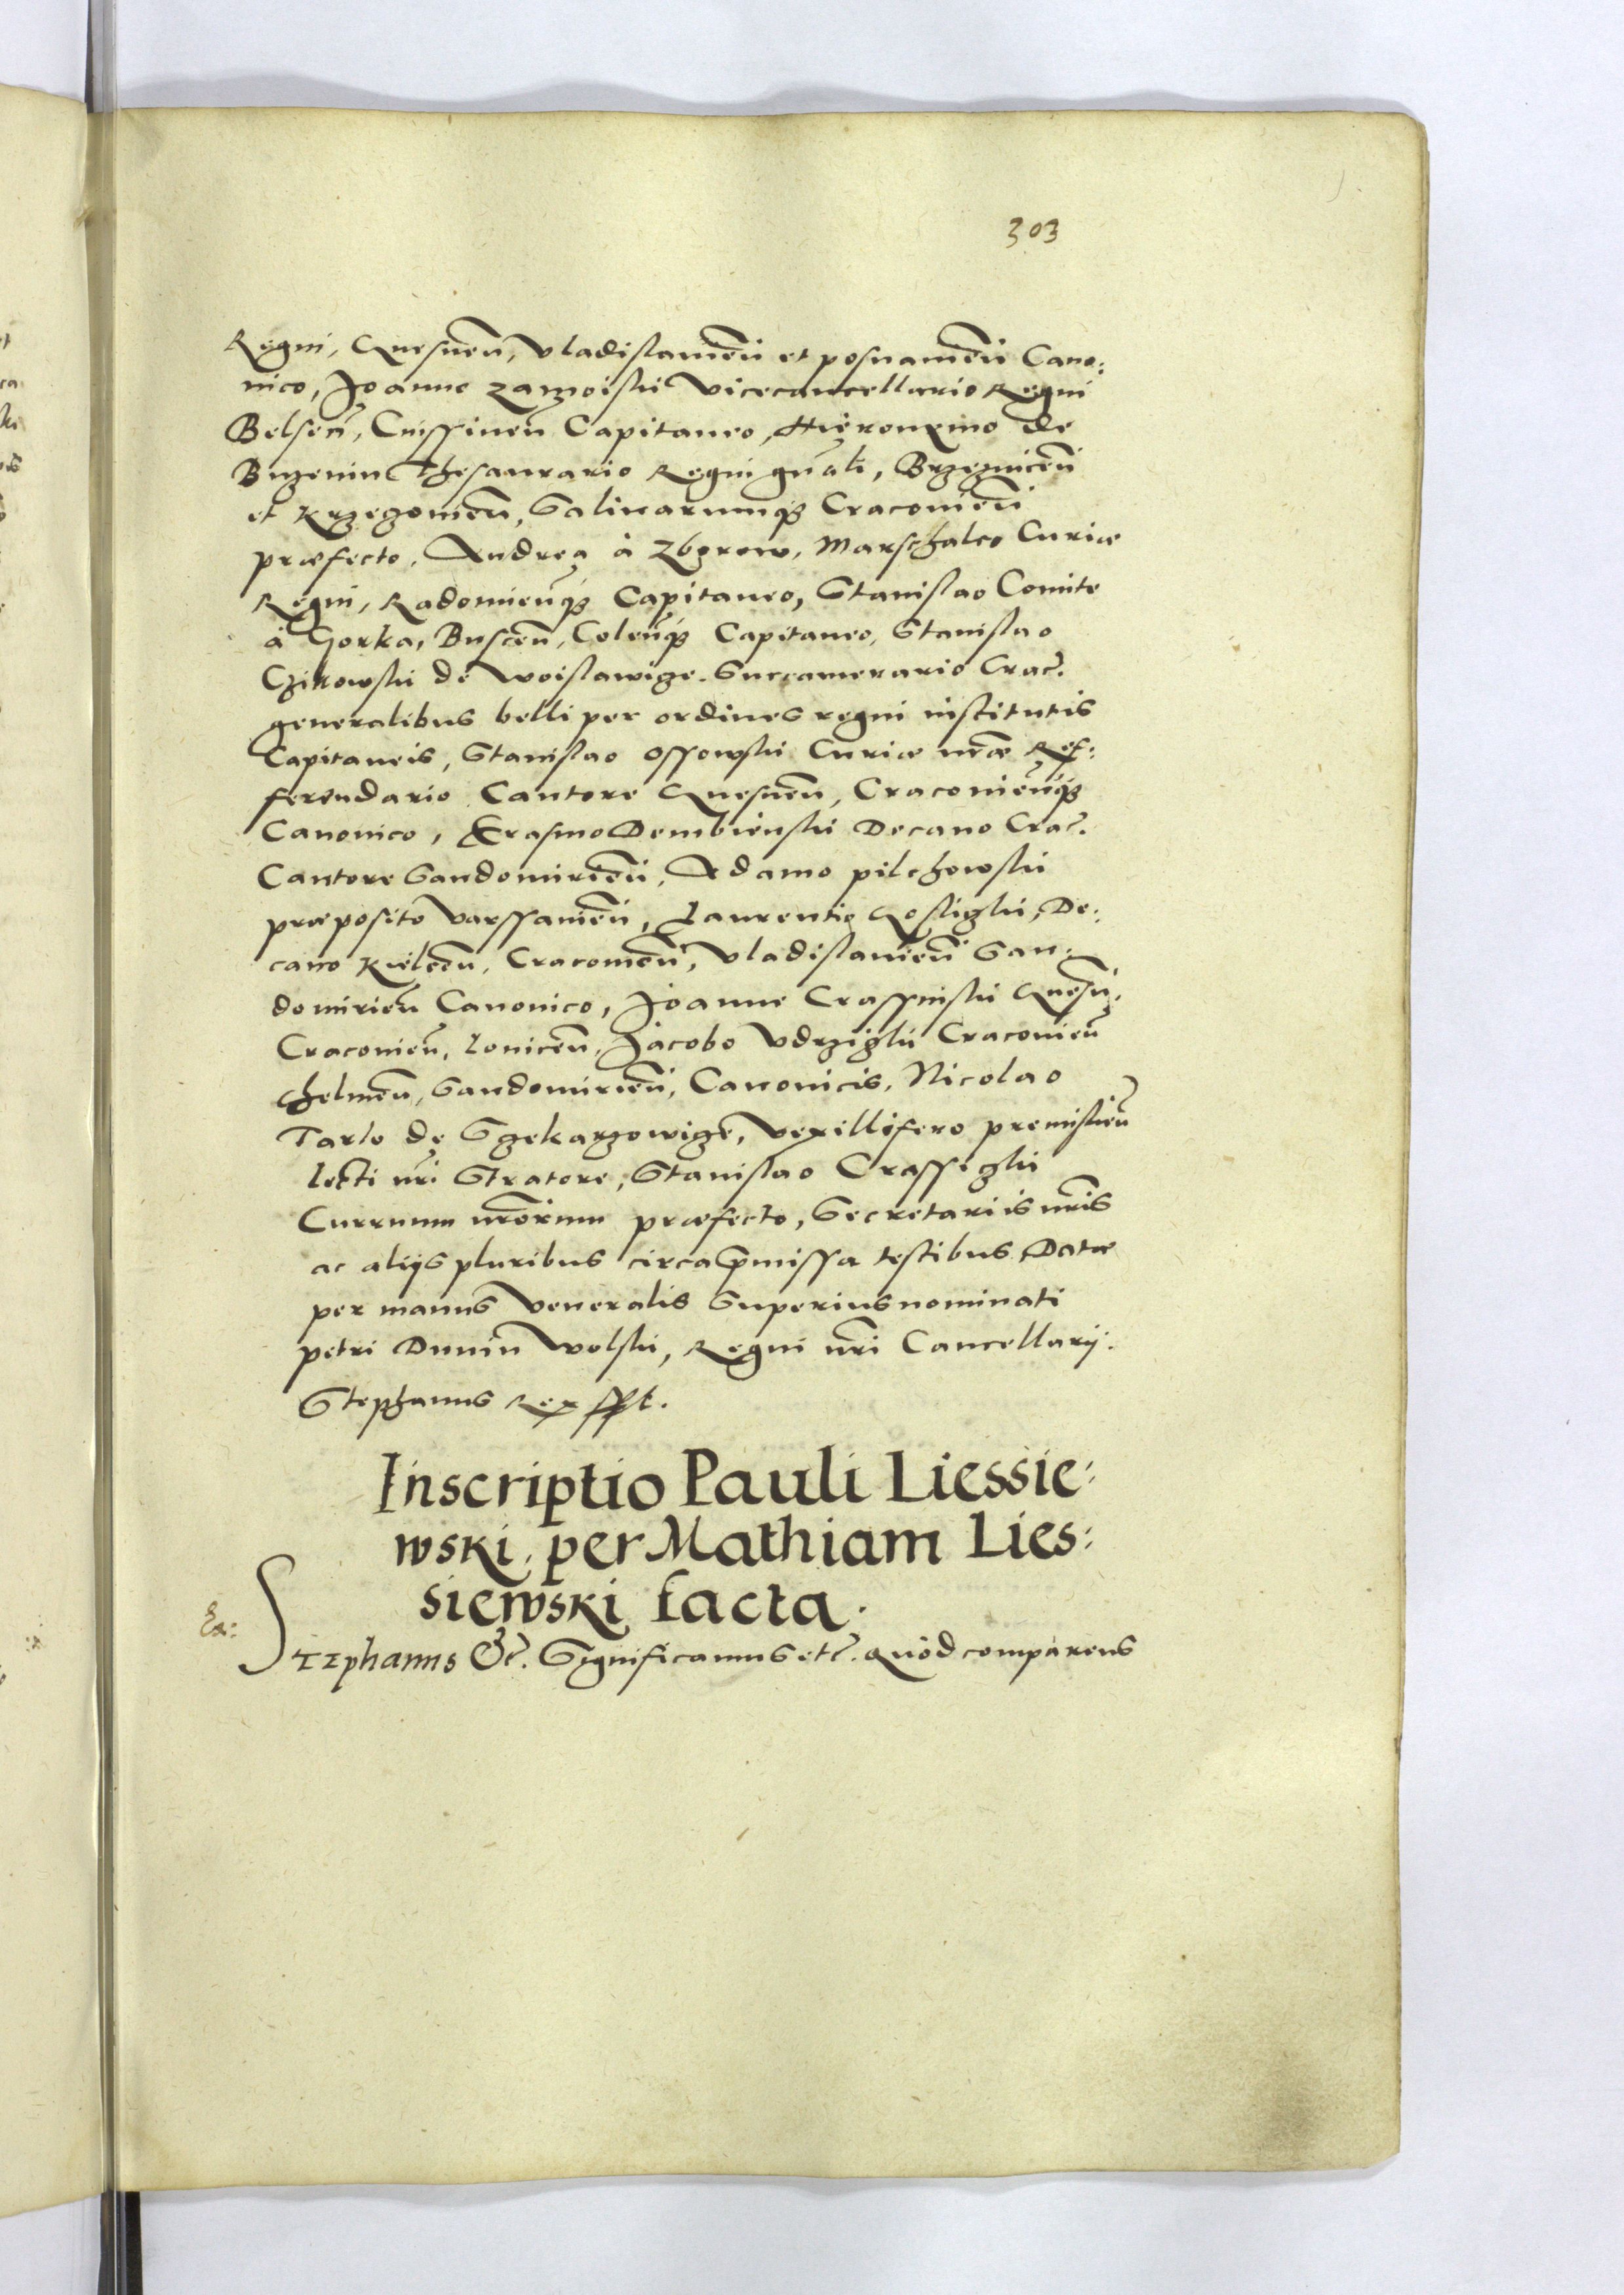 303
Regni, Gnesnen̄, Vladislauien̄ et posnanien̄ Cano:
nico, Joanne Zamoiski Vicecancellario Regni
Belsen̄, Cnissinen̄ Capitaneo, Hieronymo de
Buzenin Thesaurario Regni gn̄ali, Brzeznicen̄
et Krzezouien̄, Salinarumq3 Cracouien̄
præfecto, Andrea à Zborow, Marschalco Curiæ
Regni, Radomien̄q3 Capitaneo, Stanislao Comite
à Gorka, Buscen̄, Colen̄q3 Capitaneo, Stanislao
Czikowski de Woislawize Succamerario Crac̄.
generalibus belli per ordines regni institutis
Capitaneis, Stanislao Ossowski Curiæ nr̄æ Ref:
ferendario Cantore Gnesnen̄, Cracouien̄q3
Canonico, Erasmo Dembienski Decano Crac̄.
Cantore Sandomirien̄, Adamo pilchowski
præposito Varssauien̄, Laurentio Gosliczki, De:
cano Kielcen̄, Cracouien̄, Vladislauien̄ San:
domirien̄ Canonico, Joanne Crassinski Gnesn̄,
Cracouien̄, Louicen̄, Jacobo Vdrziczki Cracouien̄
Chelmen̄, Sandomirien̄, Canonicis, Nicolao
Tarlo de Szekarzowize, Vexillifero premislien̄
lecti nr̄i Stratore, Stanislao Crassiczki
Curruum nr̄orum præfecto, Secretariis nr̄is
ac aliys pluribus circa p̄missa testibus Datæ
per manus Veneralis Superius nominati
petri Dunin Wolski, Regni nr̄i Cancellarij.
Stephanus Rex sspt.
Inscriptio Pauli Liessie:
wski, per Mathiam Lies:
siewski facta.
Ex:
Stephanus &c̄. Significamus etc̄. quòd comparens